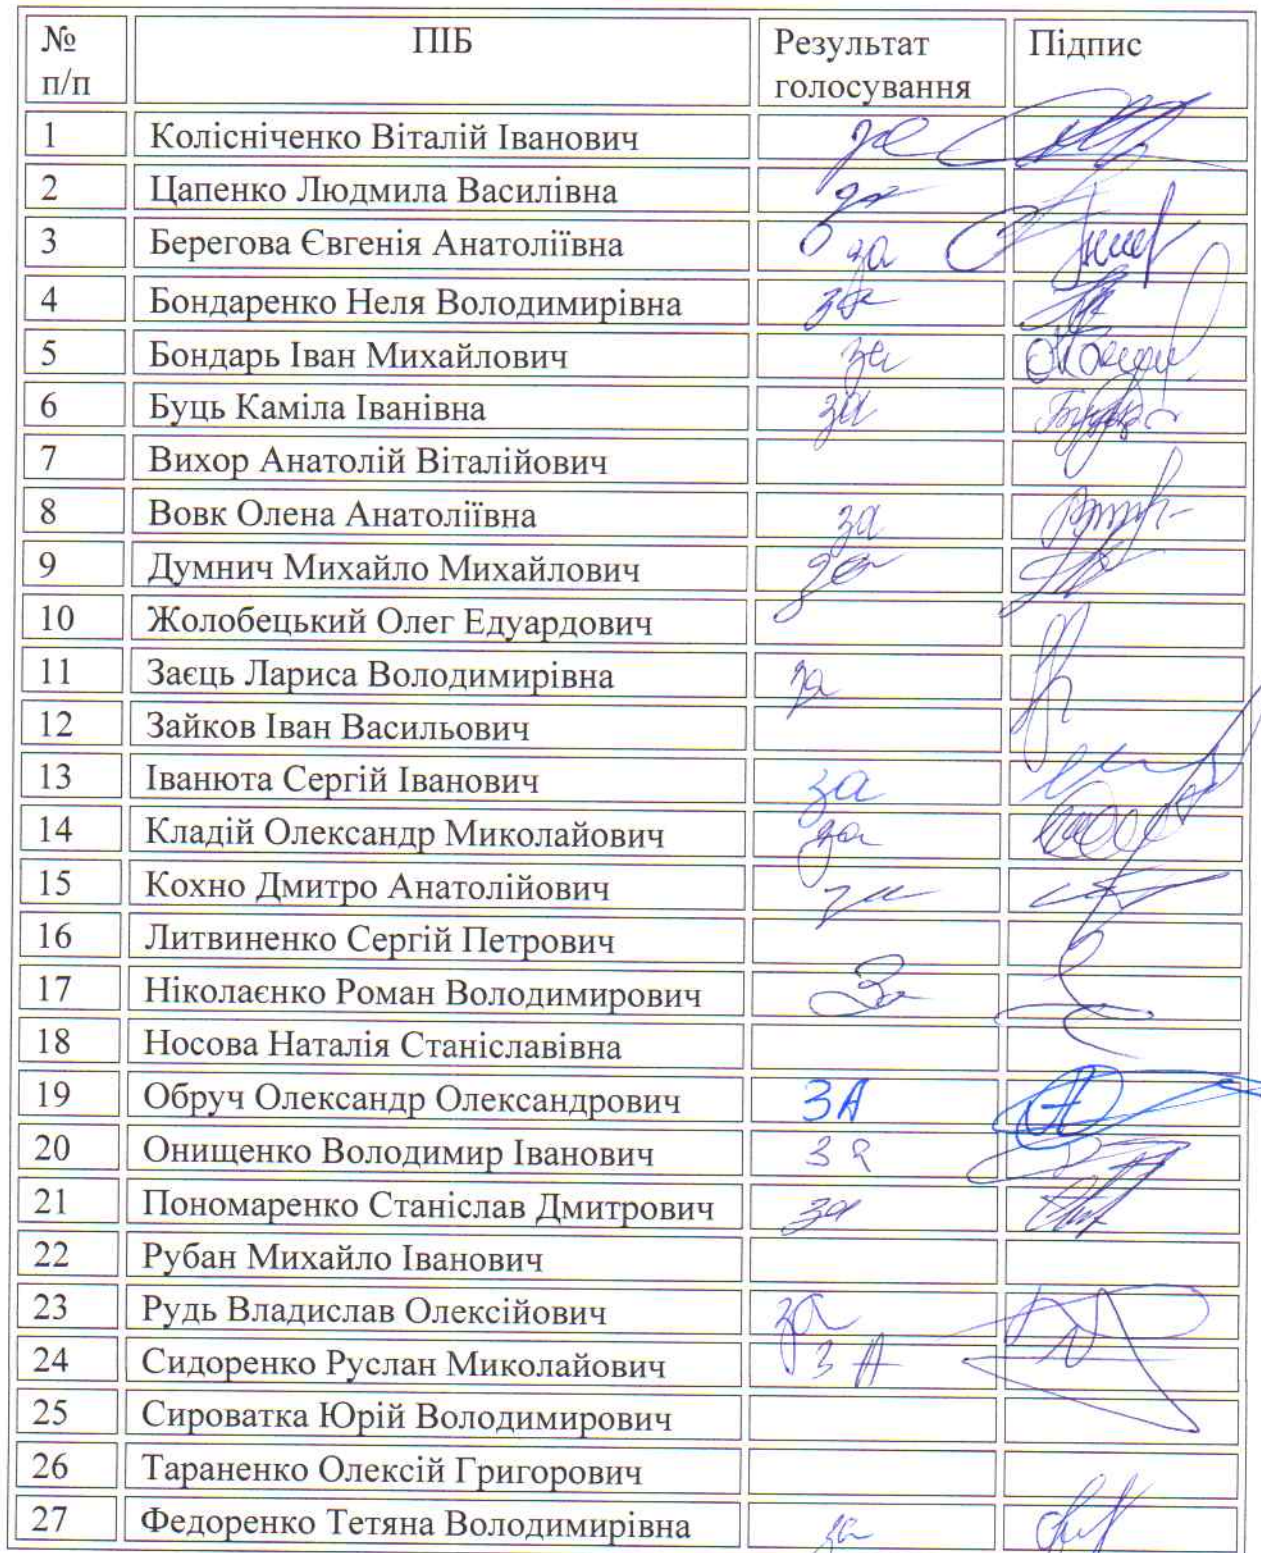 № п/п ПІБ Результат голосування Підпис
1 Колісніченко Віталій Іванович за
2 Цапенко Людмила Василівна за
3 Берегова Євгенія Анатоліївна за
4 Бондаренко Неля Володимирівна за
5 Бондарь Іван Михайлович за
6 Буць Каміла Іванівна за
7 Вихор Анатолій Віталійович
8 Вовк Олена Анатоліївна за
9 Думнич Михайло Михайлович за
10 Жолобецький Олег Едуардович
11 Заєць Лариса Володимирівна за
12 Зайков Іван Васильович
13 Іванюта Сергій Іванович за
14 Кладій Олександр Миколайович за
15 Кохно Дмитро Анатолійович за
16 Литвиненко Сергій Петрович
17 Ніколаєнко Роман Володимирович За
18 Носова Наталія Станіславівна
19 Обруч Олександр Олександрович ЗА
20 Онищенко Володимир Іванович за
21 Пономаренко Станіслав Дмитрович за
22 Рубан Михайло Іванович
23 Рудь Владислав Олексійович за
24 Сидоренко Руслан Миколайович ЗА
25 Сироватка Юрій Володимирович
26 Тараненко Олексій Григорович
27 Федоренко Тетяна Володимирівна за